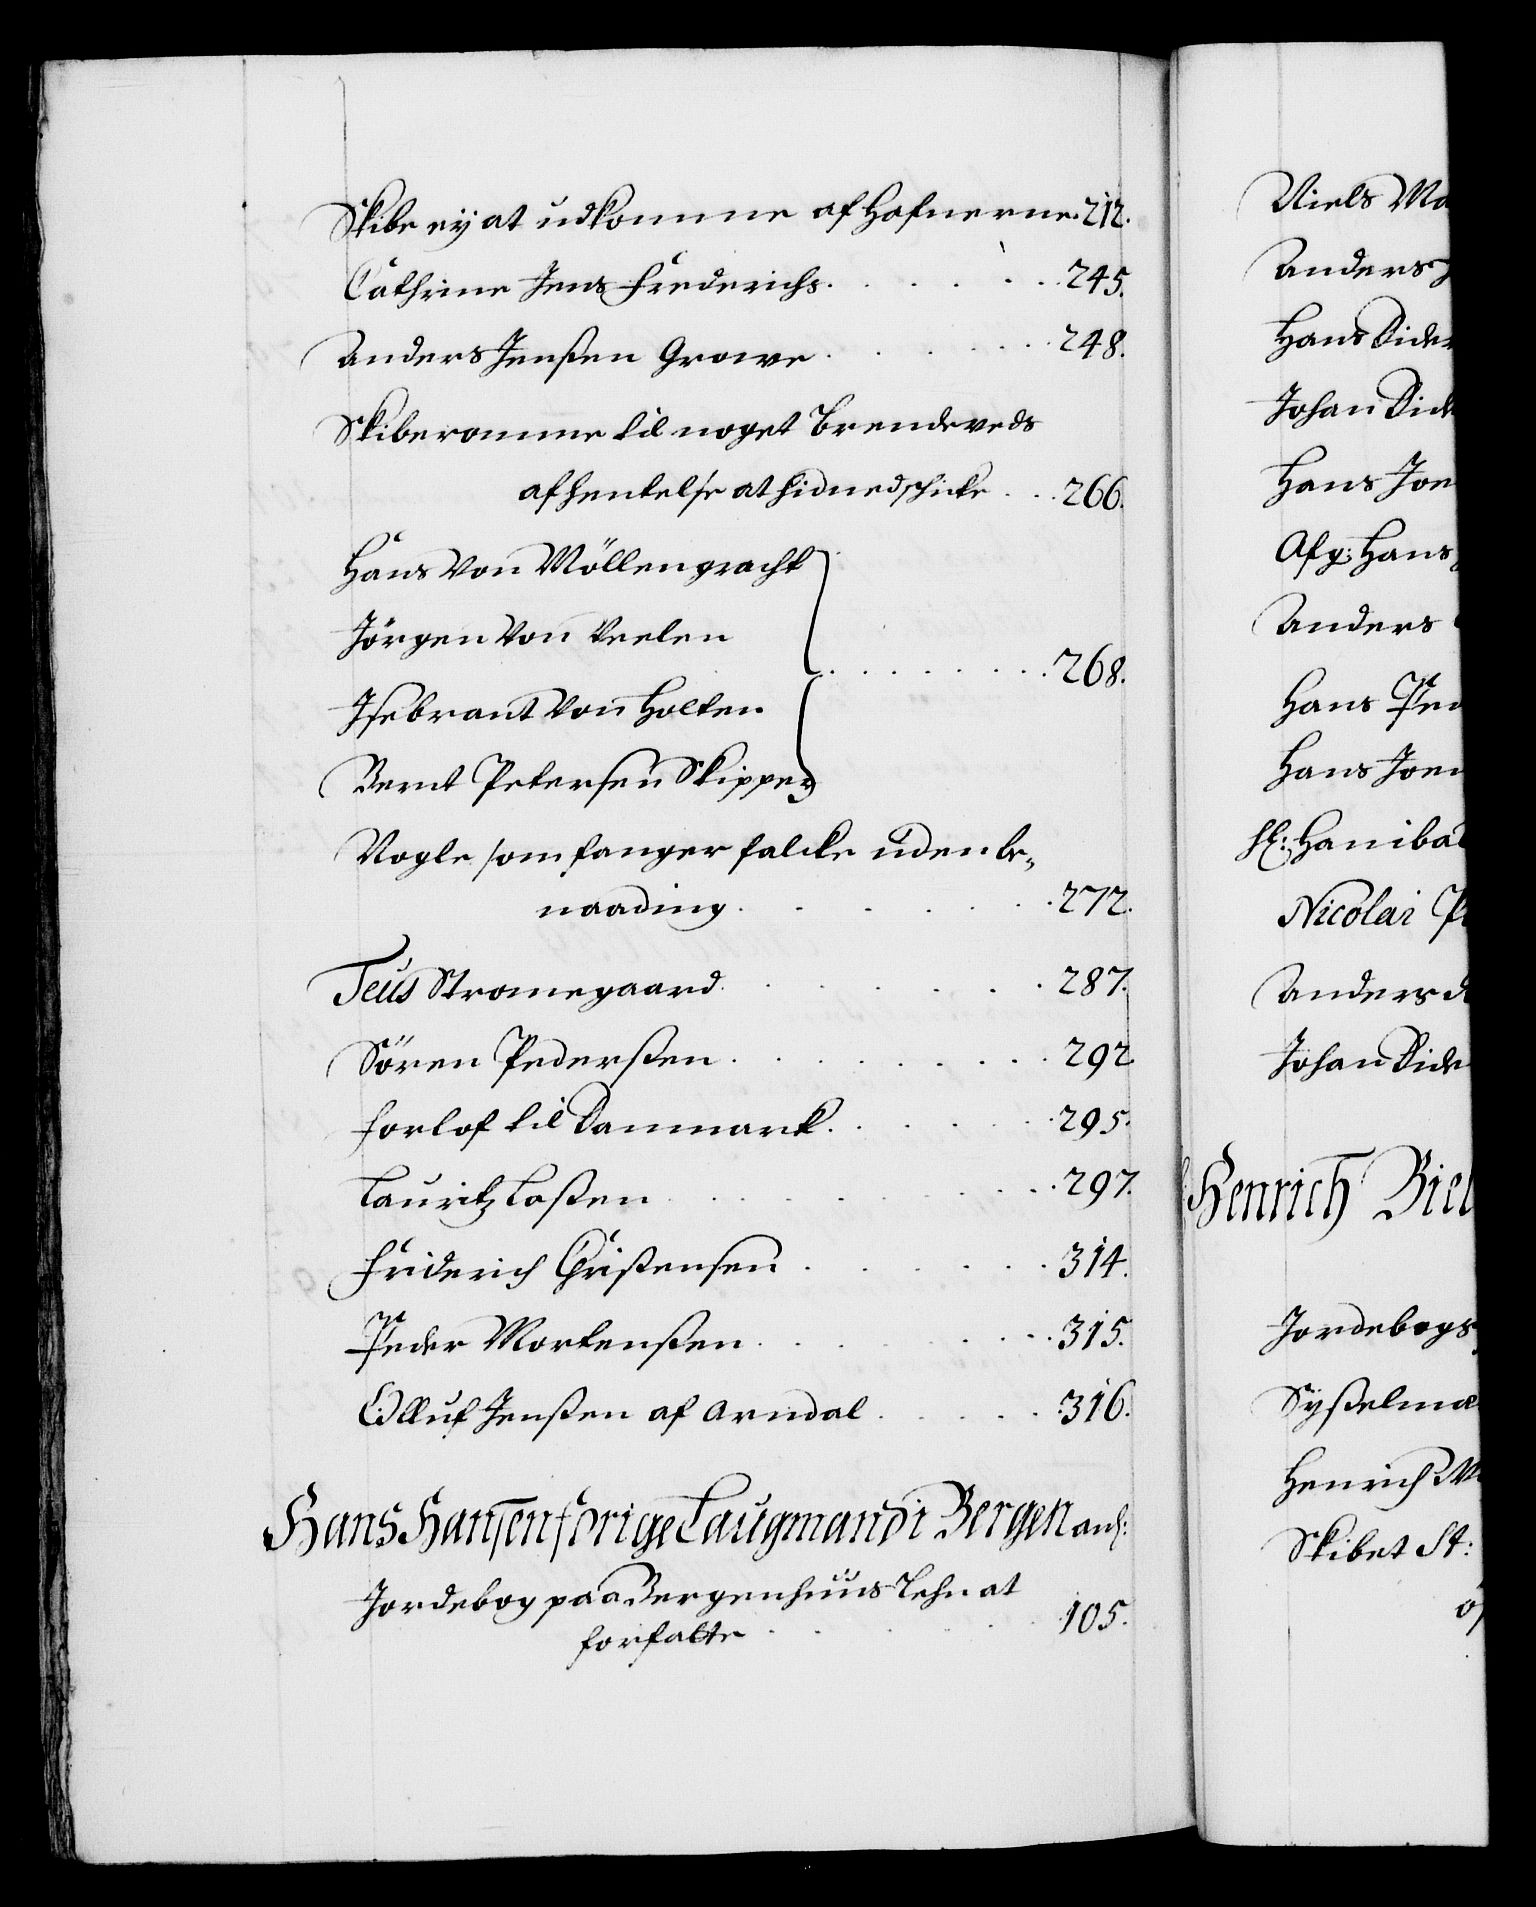 Skibe ey at udkomme af Hafnerne. 212.
Cathrine Jens Frederichs. . . . . . . 245.
Anders Jenßen Growe . . . . . . 248.
Skiberomme til noget Brendeveds
afhentelse at hidnedschicke . . . 266.
Hans Von Möllengracht
Jörgen Von Veelen
. . . . . . . . 268.
Isebrant Von Holten
Bernt Petersen Skipper
Nogle som fanger falcke uden be-
naading . . . . . . . 272.
Teus Stromegaard . . . . . . . 287.
Sören Pederßen . . . . . . . . 292
Forlof til Danmarck . . . . . . 295.
Lauritz Laßen . . . . . . . . 297.
Friderich Christensen . . . . . . 314.
Peder Mortenßen . . . . . . . 315.
Olluf Jenßen af Arndal . . . . . 316.
Hans Hansen forige Laugmand i Bergen anl:
Jordebog paa Bergenhuus Lehn at
forfatte . . . . . . 105.
Niels Ma
Anders
Hans Dider
Johan Did
Hans Joe
Afg: Hans
Anders
Hans Ped
Hans Joen
Hl: Hanibal
Nicolai P
Anders
Johan Dide
Henrich Biel
Jordebogs
Sysselmæ
Henrich M
Skibet St: